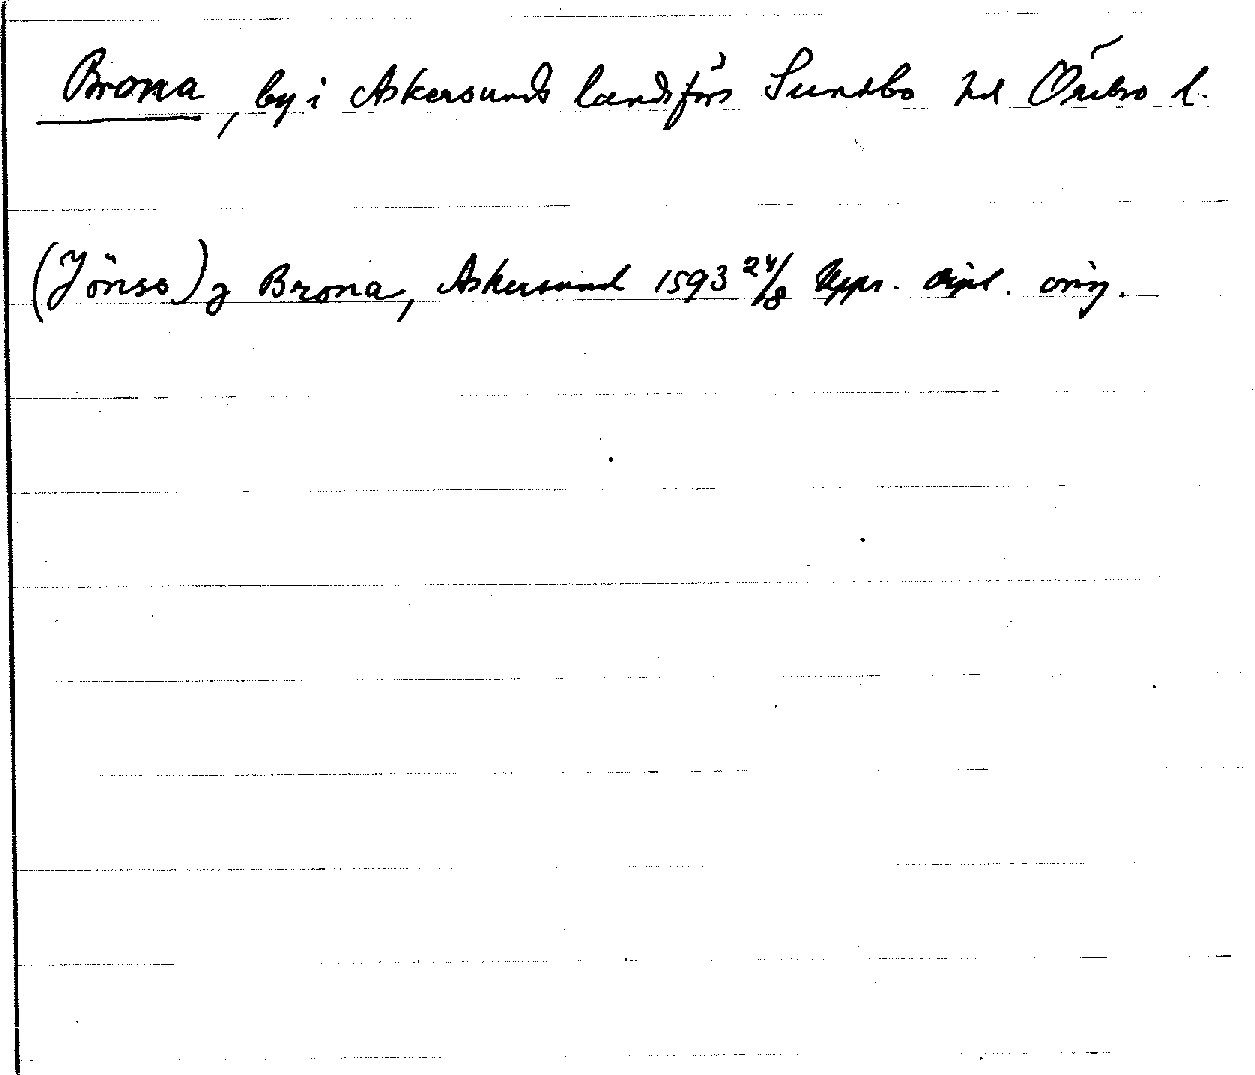 Brona, by i Askersunds landsförs Sundbo hd Örebro l.
(Jönss) j Brona, Askersund 1593 24/8 Upps. dipl. orig.